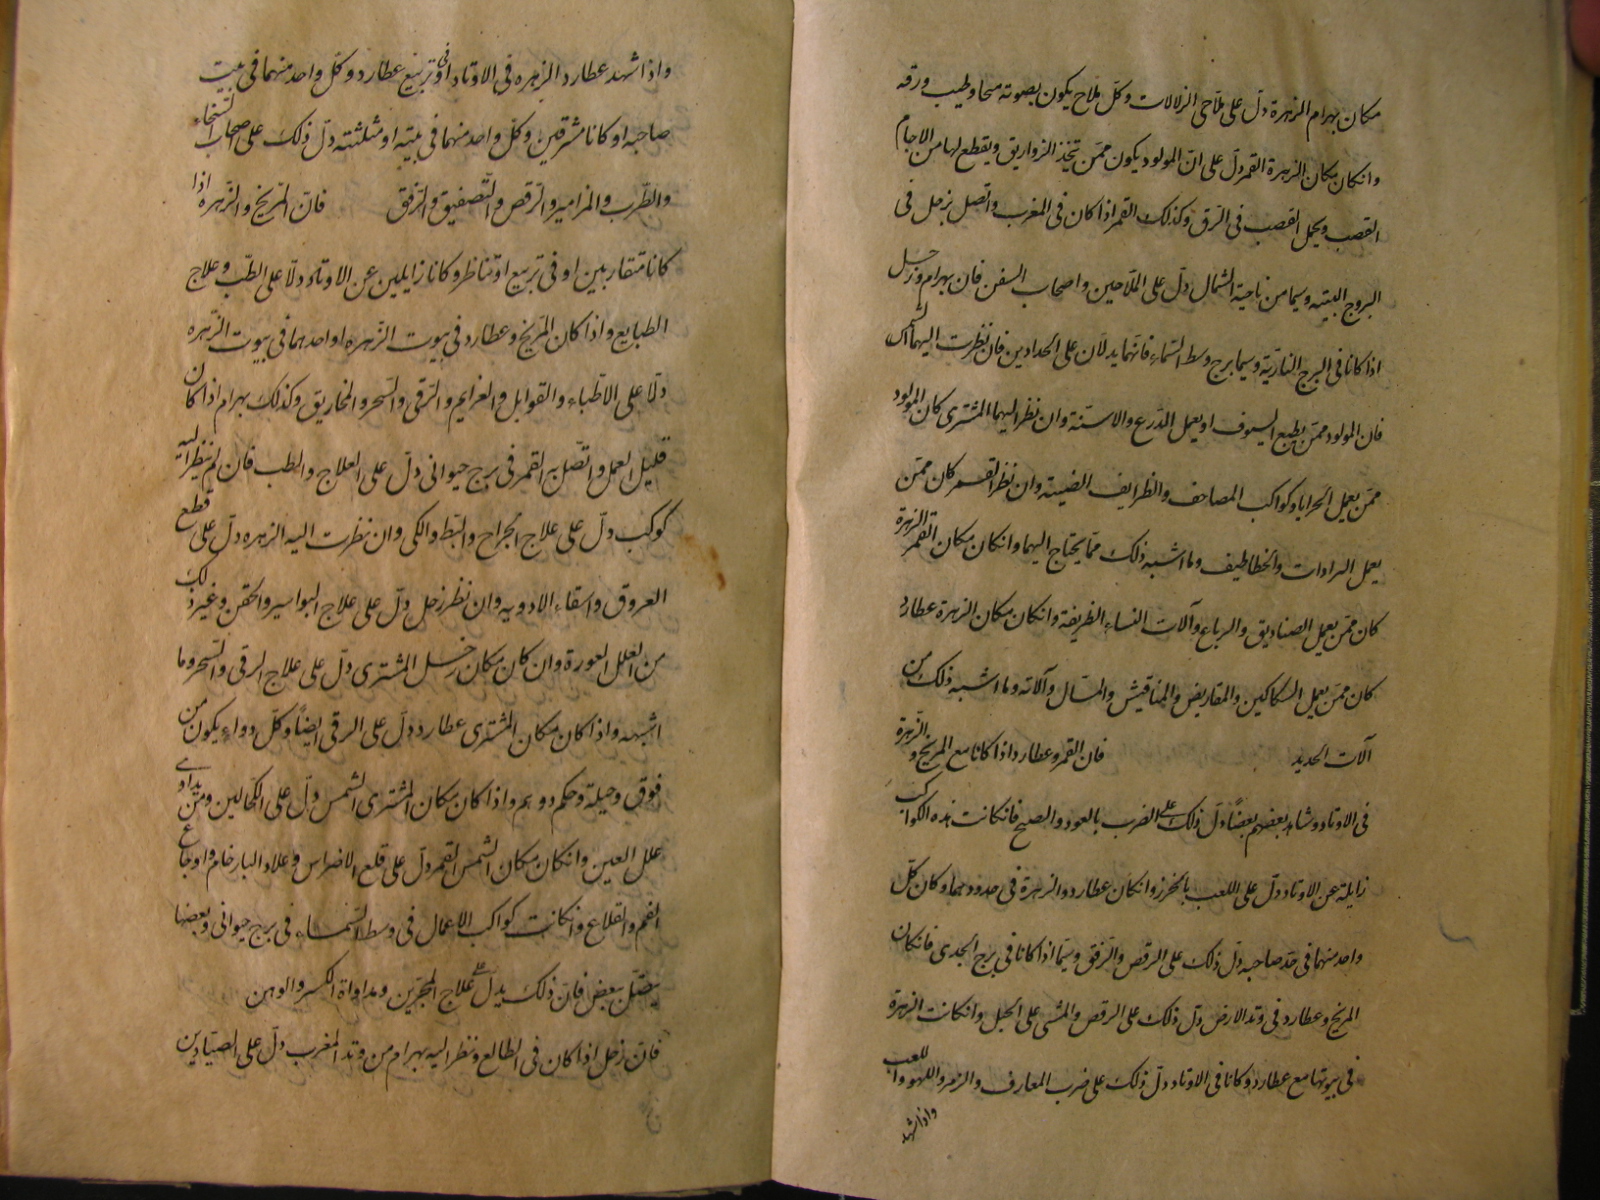 مكان بهرام الزهرة دلّ على ملاحى الزلالات وكلّ ملاح يكون بصوته منحا وطيب ورقه
وانكان مكان الزهرة القمر دلّ على انّ المولود يكون ممّن تيخذ الزواريق ويقطع لها من الاجام
القصب ويحمل القصب فى الزق وكذلك القمر اذا كان فى المغرب واتصل بزحل فى
البروج البيته وسيما من ناحية الشمال دلّ على الملاحين واصحاب السفن فان بهرام وزحل
اذا كانا فى البرج الناريّة وسيما برج وسط السّماء فانهما يدلان على الحدادين فان نظرت اليهما الشمس
فان المولود ممّن يطبع السيوف او يعمل الدرع والاسنّة وان نظر اليهما المشترى كان المولود
ممّن يعمل المرايا وكواكب المصاحف والظرايف الضيته وان نظر القمر كان ممّن
يعمل البرادات والخطاطيف وما اشبه ذلك ممّا يحتاج اليها وانكان مكان القمر الزهرة
كان ممّن يعمل الصناديق والرباع وآلات النساء الظريفة وانكان مكان الزهرة عطارد
كان ممّن يعمل السكاكين والمقاريض والمناقيش والمسال وآلاته وما اشبه ذلك من
آلات الحديد فان القمر وعطارد اذا كانا مع المريخ والزّهرة
فى الاوتاد وشاهد بعضهم بعضًا دلّ ذلك على الضرب بالعود والصنج فانكانت هذه الكواكب
زايلة عن الاوتاد دلّ على اللعب بالخرز وانكان عطارد والزهرة فى حدودهما وكان كلّ
واحد منهما فى حدّ صاحبه دلّ ذلك على الرقص والزفق وسيما اذا كانا فى برج الجدى فانكان
المريخ وعطارد فى وتد الارض دلّ ذلك على الرقص والمشى على الحبل وانكانت الزهرة
فى بيوتها مع عطارد وكانا فى الاوتاد دلّ ذلك على ضرب المعازف والزمر واللهو واللعب
واذا شهد
واذا شهد عطارد الزهره فى الاوتاد او فى تربيع عطارد وكلّ واحد منهما فى بيت
صاحبه او كانا مشرقين وكلّ واحد منهما فى بيته او مثلثته دلّ ذلك على اصحاب السّنخاء
والطّرب والمزامير والرّقص والتّصفيق والزّفق فانّ المّريخ والزّهرة اذا
كانا متقاربين او فى تربيع او تناظر وكانا زايلين عن الاوتاد دلّا على الطّب وعلاج
الطبايع واذا كان المّريخ وعطارد فى بيوت الزّهره او احدهما فى بيوت الزّهره
دلّا على الاطّباء والقوابل والعزايم والرّقى والسّحر والمخاريق وكذلك بهرام اذا كان
قليل العمل واتّصل به القمر فى برج حيوانى دلّ على العلاج والطب فان لم ينظر اليه
كوكب دلّ على علاج الجراح والبّط والكى وان نظرت اليه الزهره دلّ على قطع
العروق واسقاء الادويه وان نظر زحل دلّ على علاج البواسير والحقن وغير ذلك
من العلل العورة وان كان مكان زحل المشترى دلّ على علاج الرقى والسّحر وما
اشبهه واذا كان مكان المشترى عطارد دلّ على الرقى ايضًا وكلّ دواء يكون من
فوق وحيلة وحكم دوهم واذا كان مكان المشترى الشمس دلّ على الكحالين ومن يداوى
علل العين وانكان مكان الشمس القمر دلّ على قلع الاضراس وعلاد البارخام واوجاع
الفم والقلاع وانكانت كواكب الاعمال فى وسط السّماء فى برج حيوانى وبعضها
يتصّل ببعض فانّ ذلك يدلّ على علاج المجبّرين ومداواة الكسر والوهن
فانّ زحل اذا كان فى الطالع ونظر اليه بهرام من وتد المغرب دلّ على الصيّادين